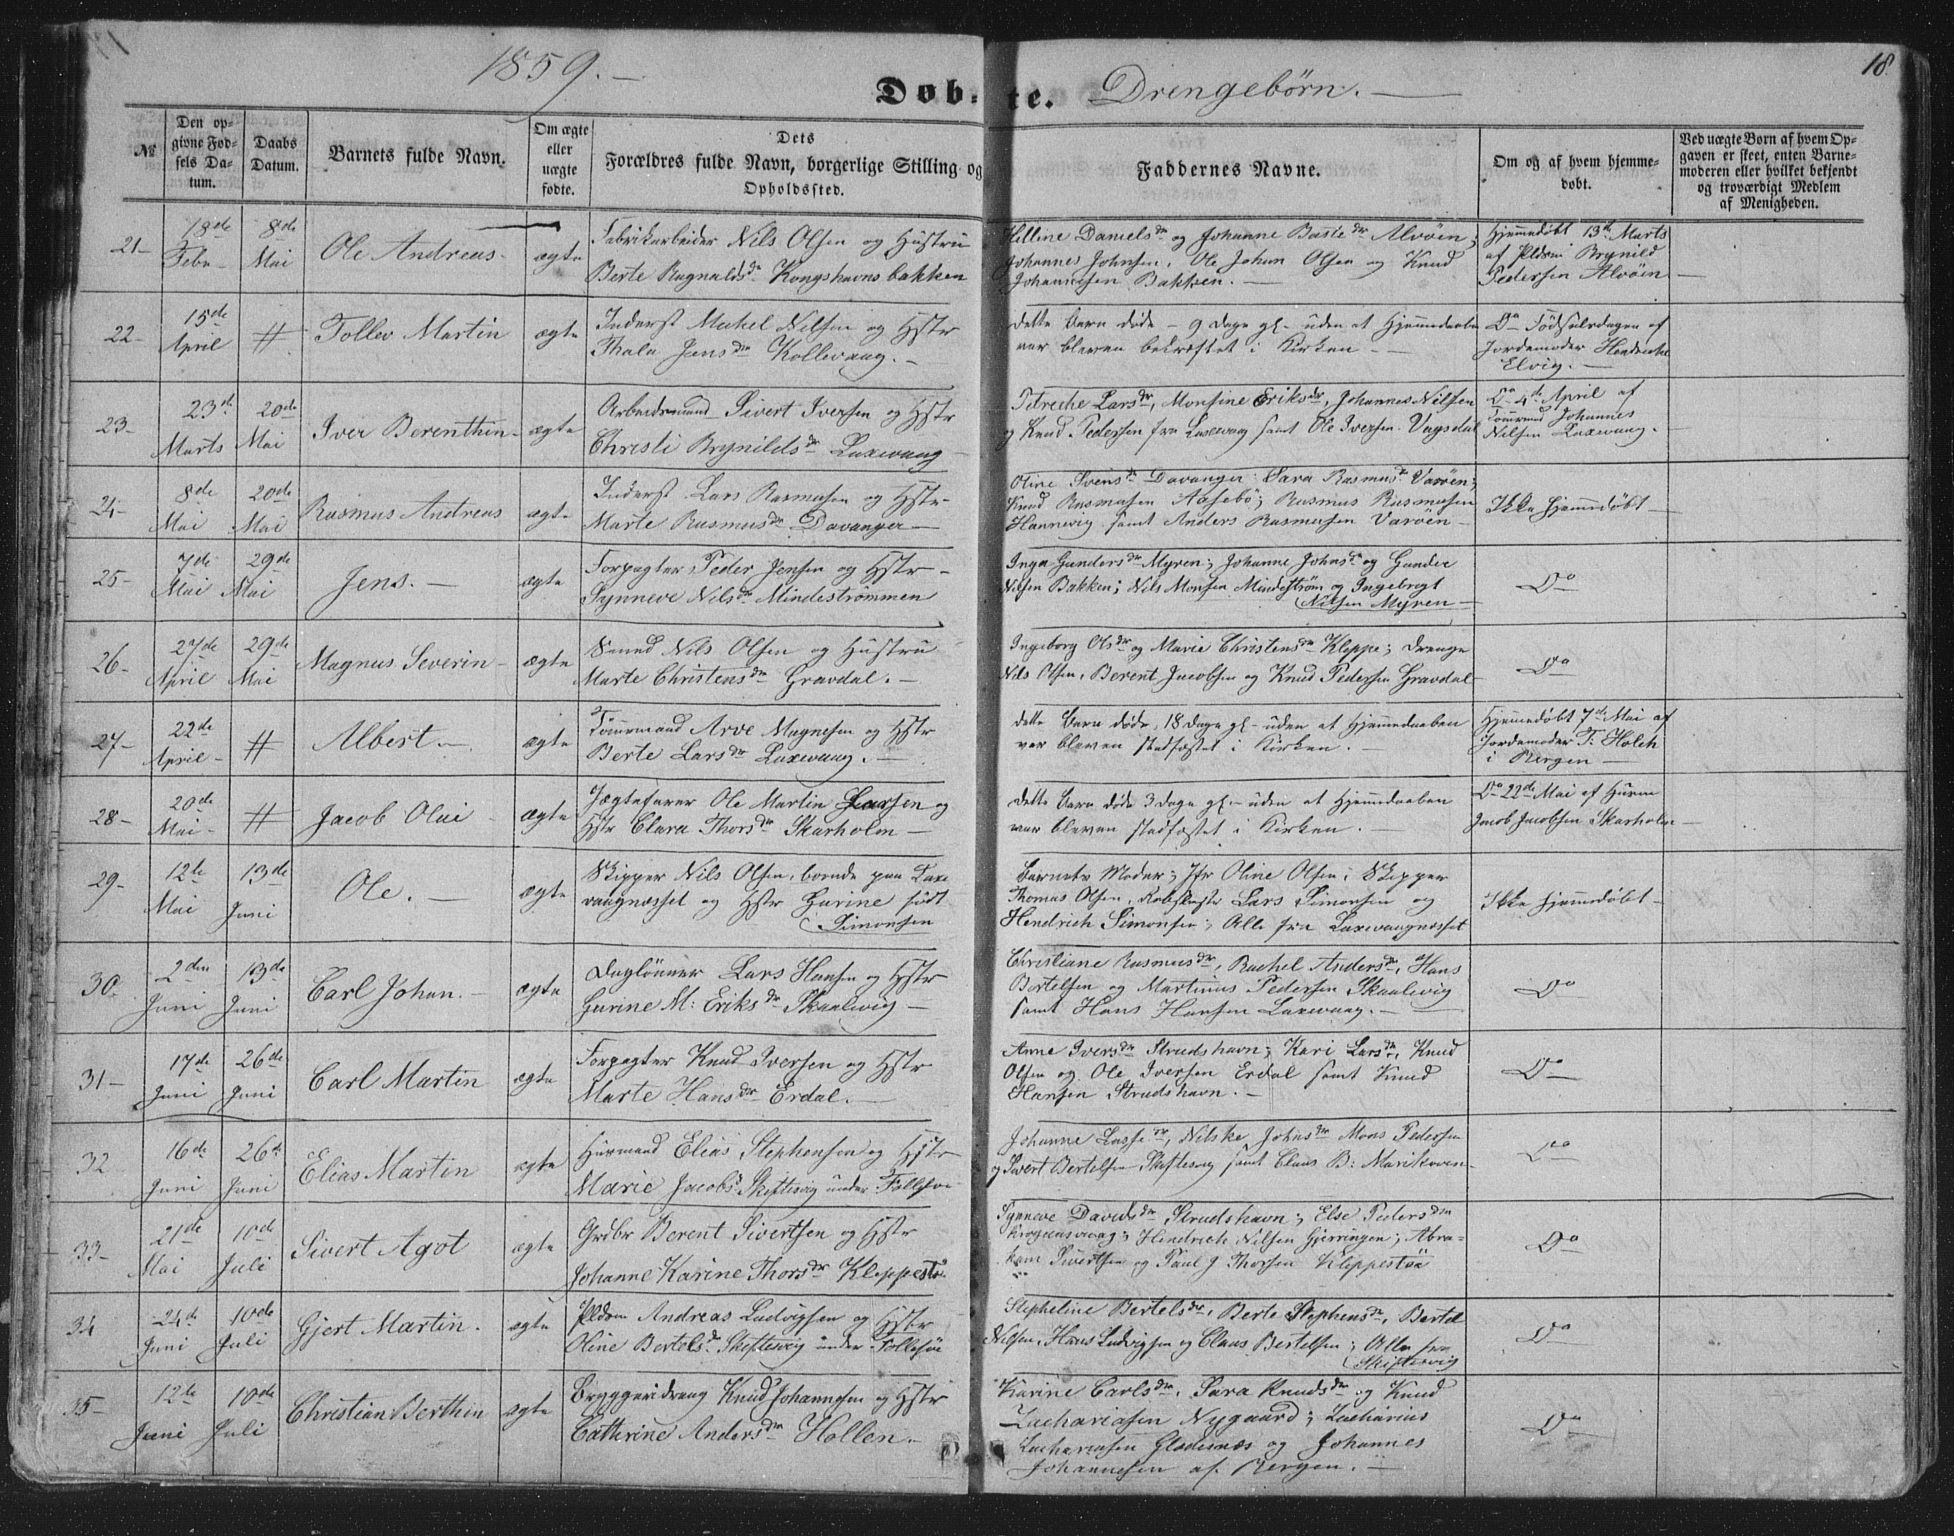 1859.
18
Døb-te. Drengebørn.
№
Den op-
givne Fød-
sels Da-
tum.
Daabs
Datum.
Barnets fulde Navn.
Om ægte
eller
uægte
fødte.
Dets
Forældres fulde Navn, borgerlige Stilling og
Opholdssted.
Faddernes Navne.
Om og af hvem hjemme-
døbt.
Ved uægte Børn af hvem Op-
gaven er skeet, enten Barne-
moderen eller hvilket bekjendt
og troværdigt Medlem
af Menigheden.
21-
18de
Febr
8de
Mai
Ole Andreas
ægte
Fabrikarbeider Nils Olsen og Hustru
Berte Ragnaldsdr Kongshavns bakken
Helline Danielsdr og Johanne Bastedr Alvøen;
Johannes Johnsen, Ole Johan Olsen og Knud
Johannesen Bakken.
Hjemmedøbt 13de Marts
af Pldsm Brynild
Pedersen Alvøen
22-
15de
April
#
Tollev Martin
ægte
Inderst Mikel Nilsen og Hstr
Thala Jensdr Kollevaag.
Dette Barn døde - 9 Dage gl- uden at Hjemmedaaben
var bleven bekræftet i Kirken.
Do Fødselsdagen af
Jordemoder Hendrikke
Elvig.
23-
23de
Marts
20de
Mai
Iver Berenthin
ægte
Arbeidsmand Sivert Iversen og Hstr
Christi Brynildsdr Laxevaag
Petreche Larsdr, Monsine Eriksdr, Johannes Nilsen
og Knud Pedersen fra Laxevaag samt Ole Iversen Vagsdal
Do 4de April af
Tømmd Johannes
Nilsen Laxevaag.
24-
8de
Mai
20de
Mai
Rasmus Andreas
ægte
Inderst Lars Rasmusen og Hstr
Marte Rasmusdr Davanger
Oline Svensdr Davanger Sara Rasmusdr Varøen;
Knud Rasmusen Aasebø; Rasmus Rasmusen
Hannevig samt Anders Rasmusen Varøen
Ikke hjemmedøbt
25-
7de
Mai
29de
Mai
Jens.
ægte
Forpagter Peder Jensen og Hstr
Synneve Nilsdr Mindestrømmen
Inga Gundersdr Myren; Johanne Johnsdr og Gunder
Nilsen Bakken; Nils Monsen Mindestrøm og Ingebrigt
Nilsen Myren
Do
26-
27de
April
29de
Mai
Magnus Severin
ægte
Nils Olsen og Hustru
Marte Christensdr Gravdal.
Ingeborg Olsdr og Marie Christensdr Kleppe; Drenge
Nils Olsen, Berent Jacobsen og Knud Pedersen Gravdal
Do
27-
22de
April
#
Albert.
ægte
Tømmermand Arve Magnesen og Hstr
Berte Larsdr Laxevaag.
Dette Barn døde, 18 Dage gl- uden at Hjemmedaaben
var bleven stadfæstet i Kirken.
Hjemmedøbt 7de Mai af
Jordemoder T: Holch
i Bergen
28-
20de
Mai
#
Jacob Olai
ægte
Jægtefører Ole Martin Larsen og
Hstr Clara Thorsdr Skarholm
Dette Barn døde 3 Dage gl- uden at Hjemmedaaben
var bleven stadfæstet i Kirken.
Do 22de Mai af Huusm
Jacob Jacobsen Skarholm
29-
12te
Mai
13de
Juni
Ole.
ægte
Skipper Nils Olsen, boende paa Laxe
vaagnæsset og Hstr Gurine født
Simonsen
Barnets Moder; Jfr Oline Olsen; Skipper
Thomas Olsen, Lars Simonsen og
Hendrich Simonsen; Alle fra Laxevaagnæsset
Ikke hjemmedøbt
30.
2den
Juni
13de
Juni
Carl Johan.
ægte
Daglønner Lars Hansen og Hstr
Gurine M: Eriksdr Skaalevig
Christiane Rasmusdr, Rachel Andersdr, Hans
Bertelsen og Martinus Pedersen Skaalevig
samt Hans Hansen Laxevaag.
Do
31-
17de
Juni
26de
Juni
Carl Martin
ægte
Forpagter Knud Iversen og Hstr
Marte Hansdr Erdal.
Anne Iversdr Strudshavn; Kari Larsdr, Knud
Olsen og Ole Iversen Erdal samt Knud
Hansen Strudshavn.
Do
32
16de
Juni
26de
Juni
Elias Martin
ægte
Huusmand Elias Stephensen og Hstr
Marie Jacobsdr Skiftesvig under Follesøe
Johanne Lassedr, Nilske Johnsdr Mons Pedersen
og Sivert Bertelsen Skiftesvig samt Claus B: Marikoven
Do
33-
21de
Mai
10de
Juli
Sivert Agot
ægte
Grdbr Berent Sivertsen og Hstr
Johanne Karine Thorsdr Kleppestø
Synneve Davidsdr Strudshavn; Else Pedersdr
Kragensvaag; Hindrich Nilsen Gjerringen; Abra-
ham Sivertsen og Paul J Thorsen Kleppestøe
Do
34
24de
Juni
10de
Juli
Gjert Martin.
ægte
Pldsm Andreas Ludvigsen og Hstr
Oline Bertelsdr Skiftesvig under Follesøe
Stepheline Bertelsdr, Berte Stephensdr, Bertel
Nilsen, Hans Ludvigsen og Claus Bertelsen; Alle fra
Skiftesvig
Do
35-
12te
Juni
10de
Juli
Christian Berthin
ægte
Bryggeridreng Knud Johannesen og Hstr
Cathrine Andersdr Hollen.
Karine Carlsdr, Sara Knudsdr og Knud
Zachariasen Nygaard; Zacharias
Zachariasen Gladesnæs og Johannes
Johannesen af Bergen.
Do